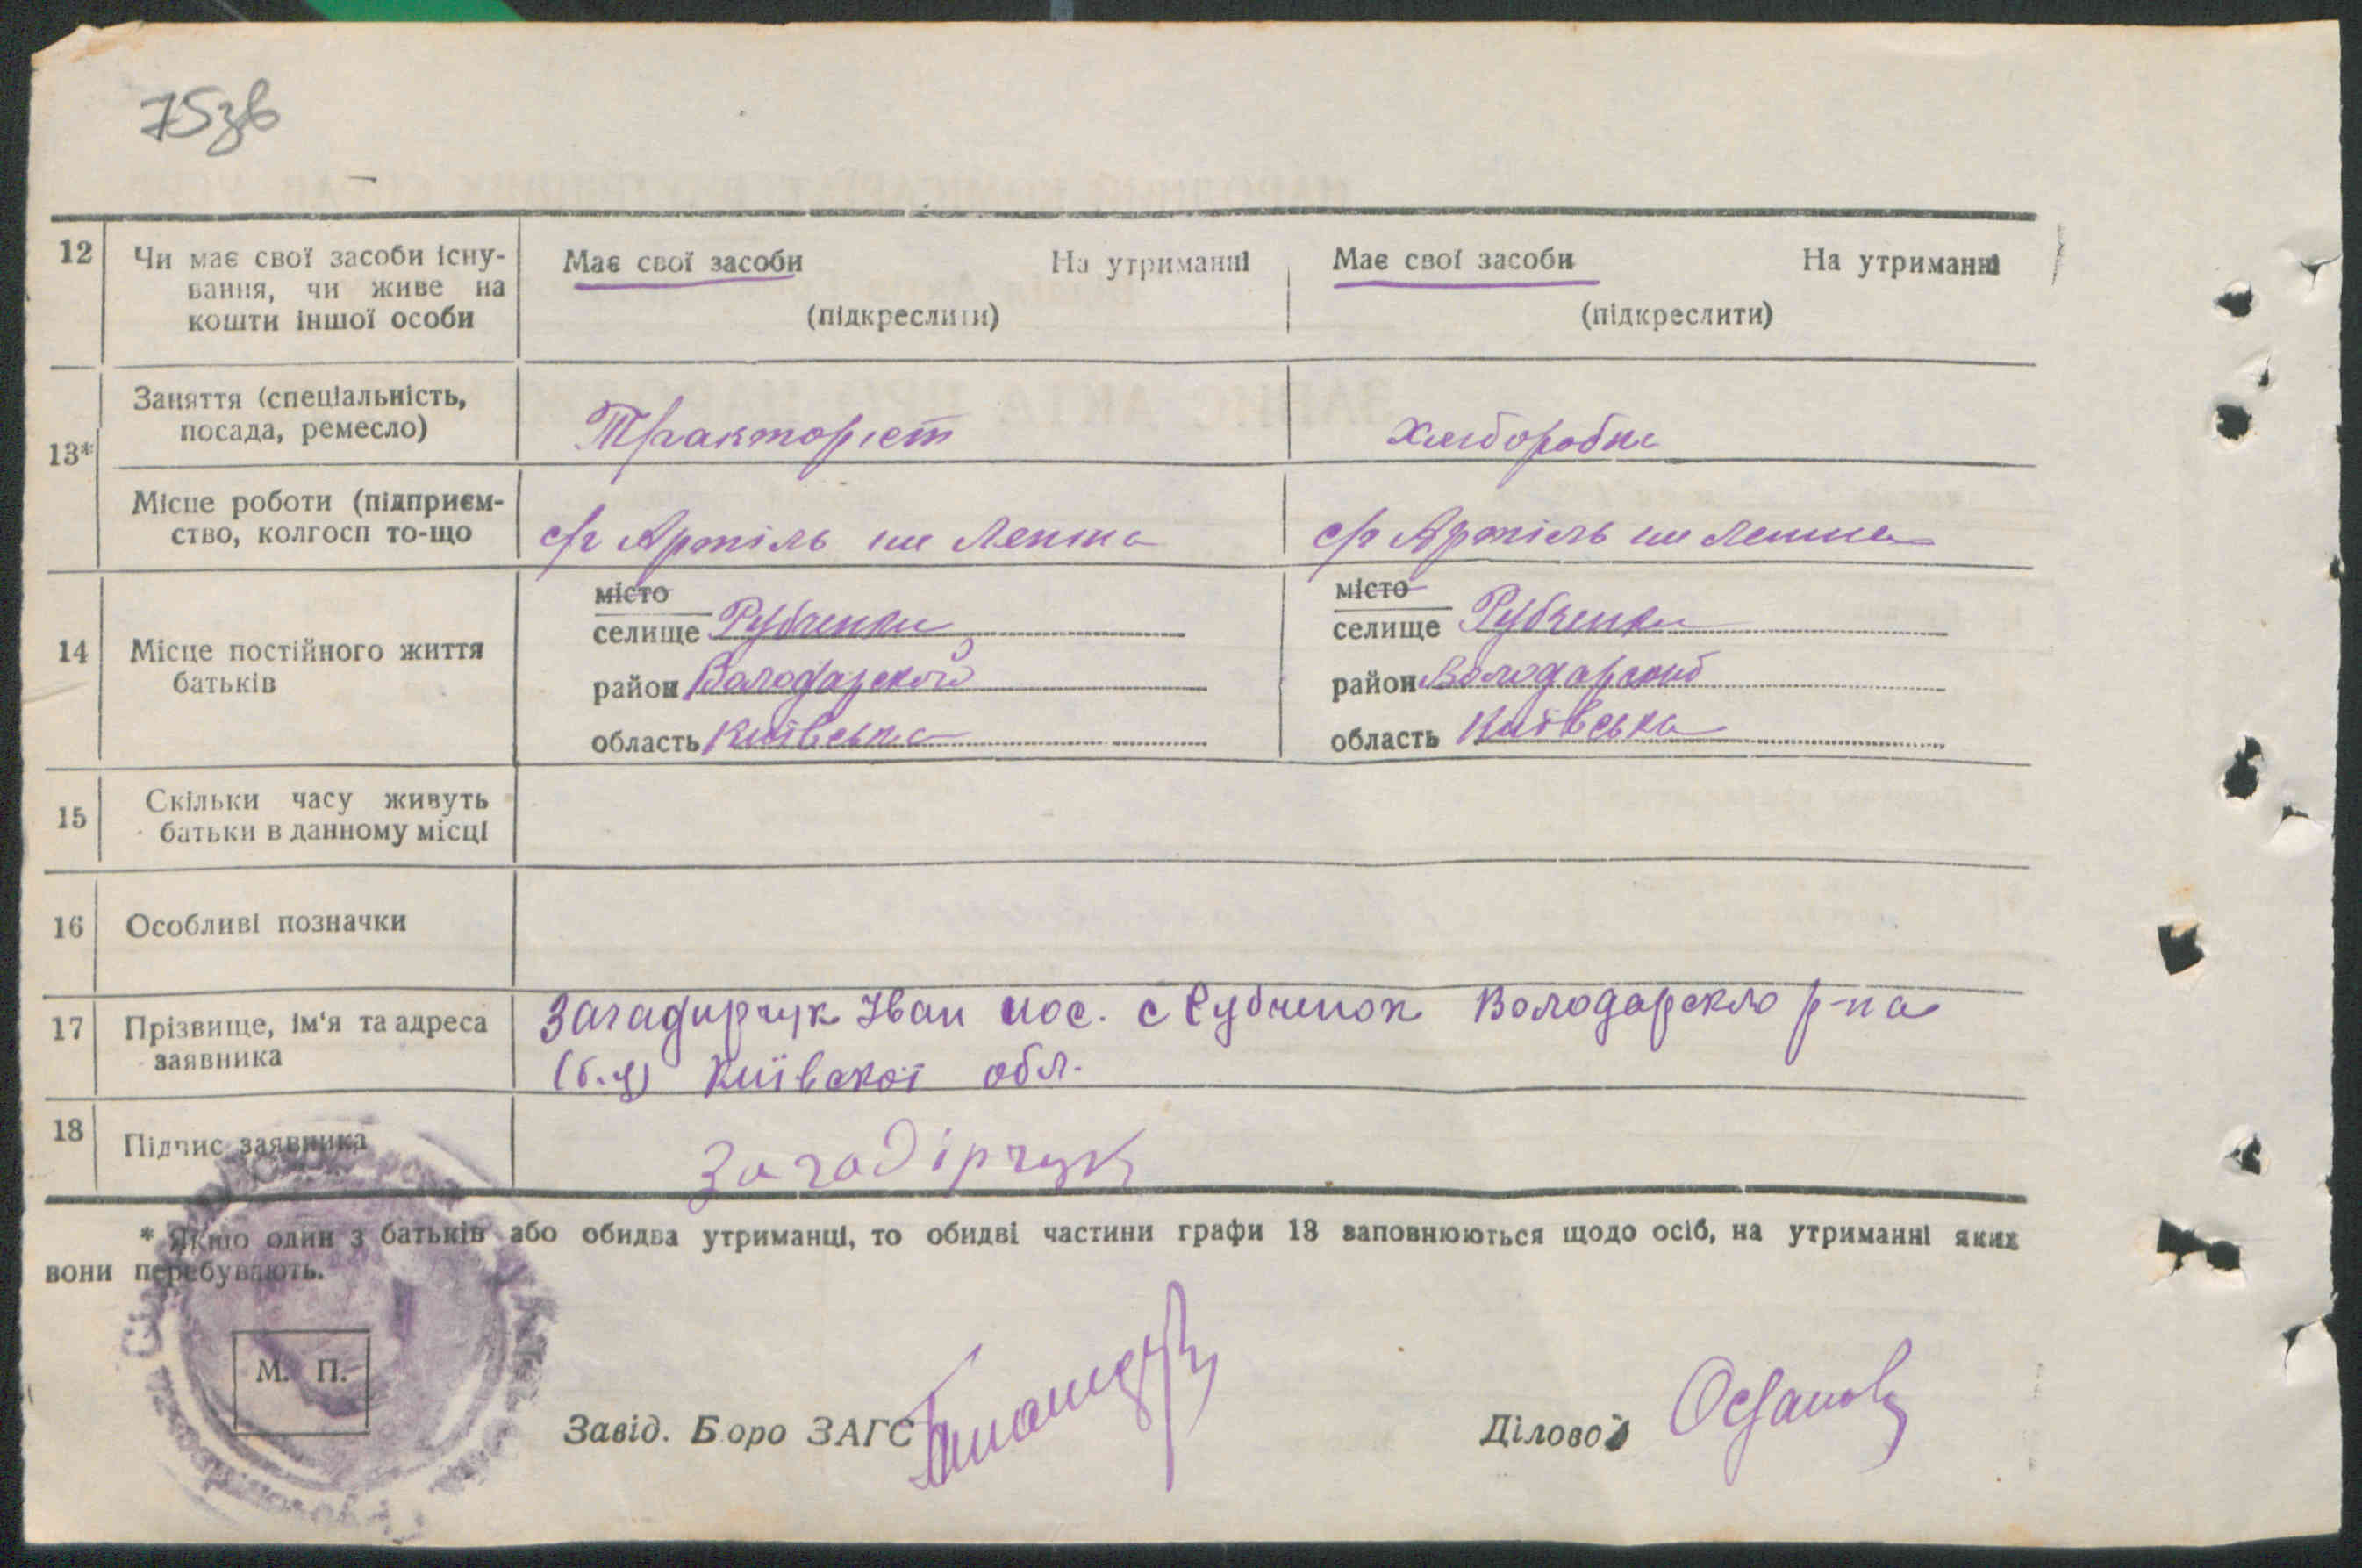 75зв
12 Чи має свої засоби існу- Має свої засоби На утриманні Має свої засоби На утриманні
вання, чи живе на
кошти іншої особи (підкреслити) (підкреслити)
13* Заняття (спеціальність,
посада, ремесло) Тракторіст Хліборобка
Місце роботи (підприєм-
ство, колгосп то-що с/г Артіль им Леніна с/г Артіль им Леніна
14 Місце постійного життя
батьків
місто місто
селище Рубченки селище Рубченки
район Володарской район Володарской
область Київська область Київська
15 Скільки часу живуть
батьки в данному місці
16 Особливі позначки
17 Прізвище, ім'я та адреса Загадирчук Іван иос. с Рубченок Володарскло р-на
заявника Київскої обл.
18 Підпис заявника Загадірчук
* Якшо один з батьків або обидва утриманці, то обидві частини графи 13 заповнюються щодо осіб, на утриманні яких
вони перебувають.
М. П.
Завід. Бюро ЗАГС Діловод